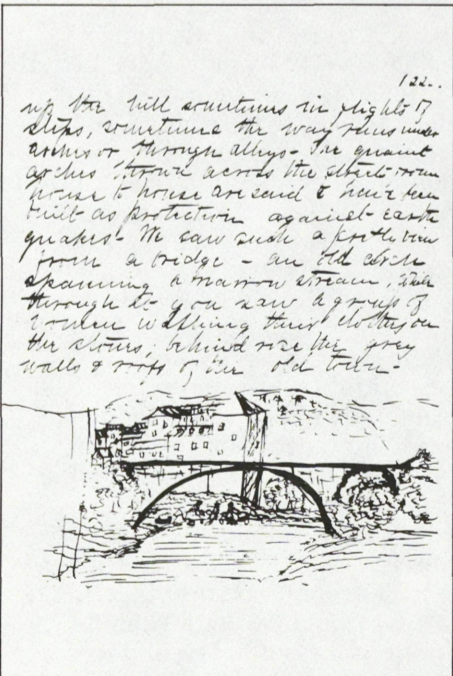 122.
up the hill sometimes in flights of
steps, sometimes the way runs under
arches or through alleys - The quaint
arches thrown across the street from
house to house are said to have been
built as protection against earth
quakes - We saw such a pretty view
from a bridge - an old arch
spanning a narrow stream, while
through it you saw a group of
women washing their clothes on
the stones; behind rose the grey
walls & roofs of the old town -